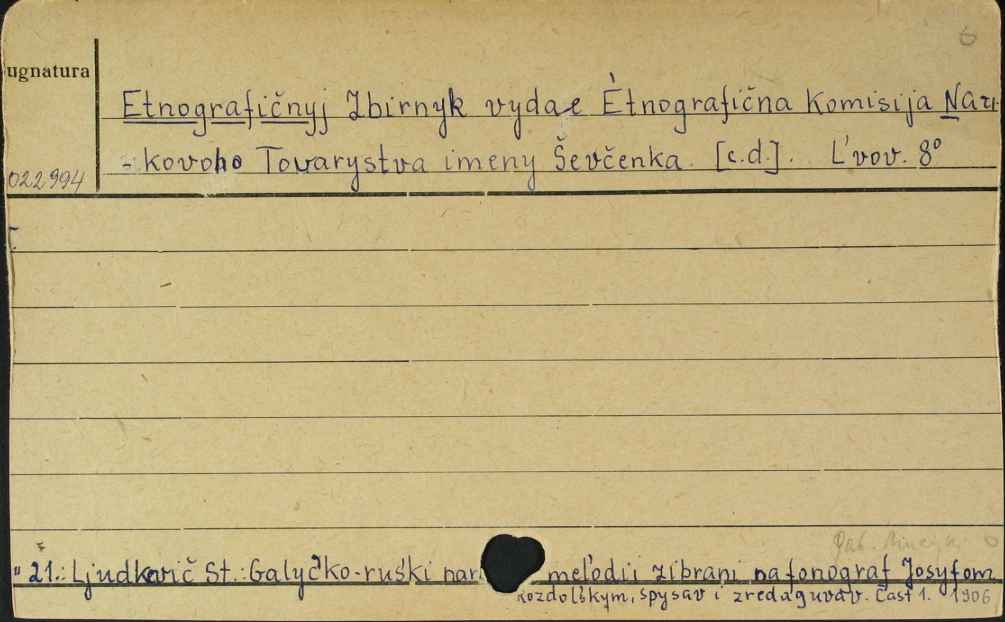 6
ugnatura
Etnografičnyj Zbirnyk vydae Étnografična Komisija Nau
022994
kovoho Tovarystva imeny Ševčenka. [c.d.]. L'vov. 8°
" 21.: Ljudkevič St.: Galyčko-ruśki nar melodii zibrani na fonograf Josyfom
Rozdolśkym, spysav i zredaguvav. Čast 1. 1906